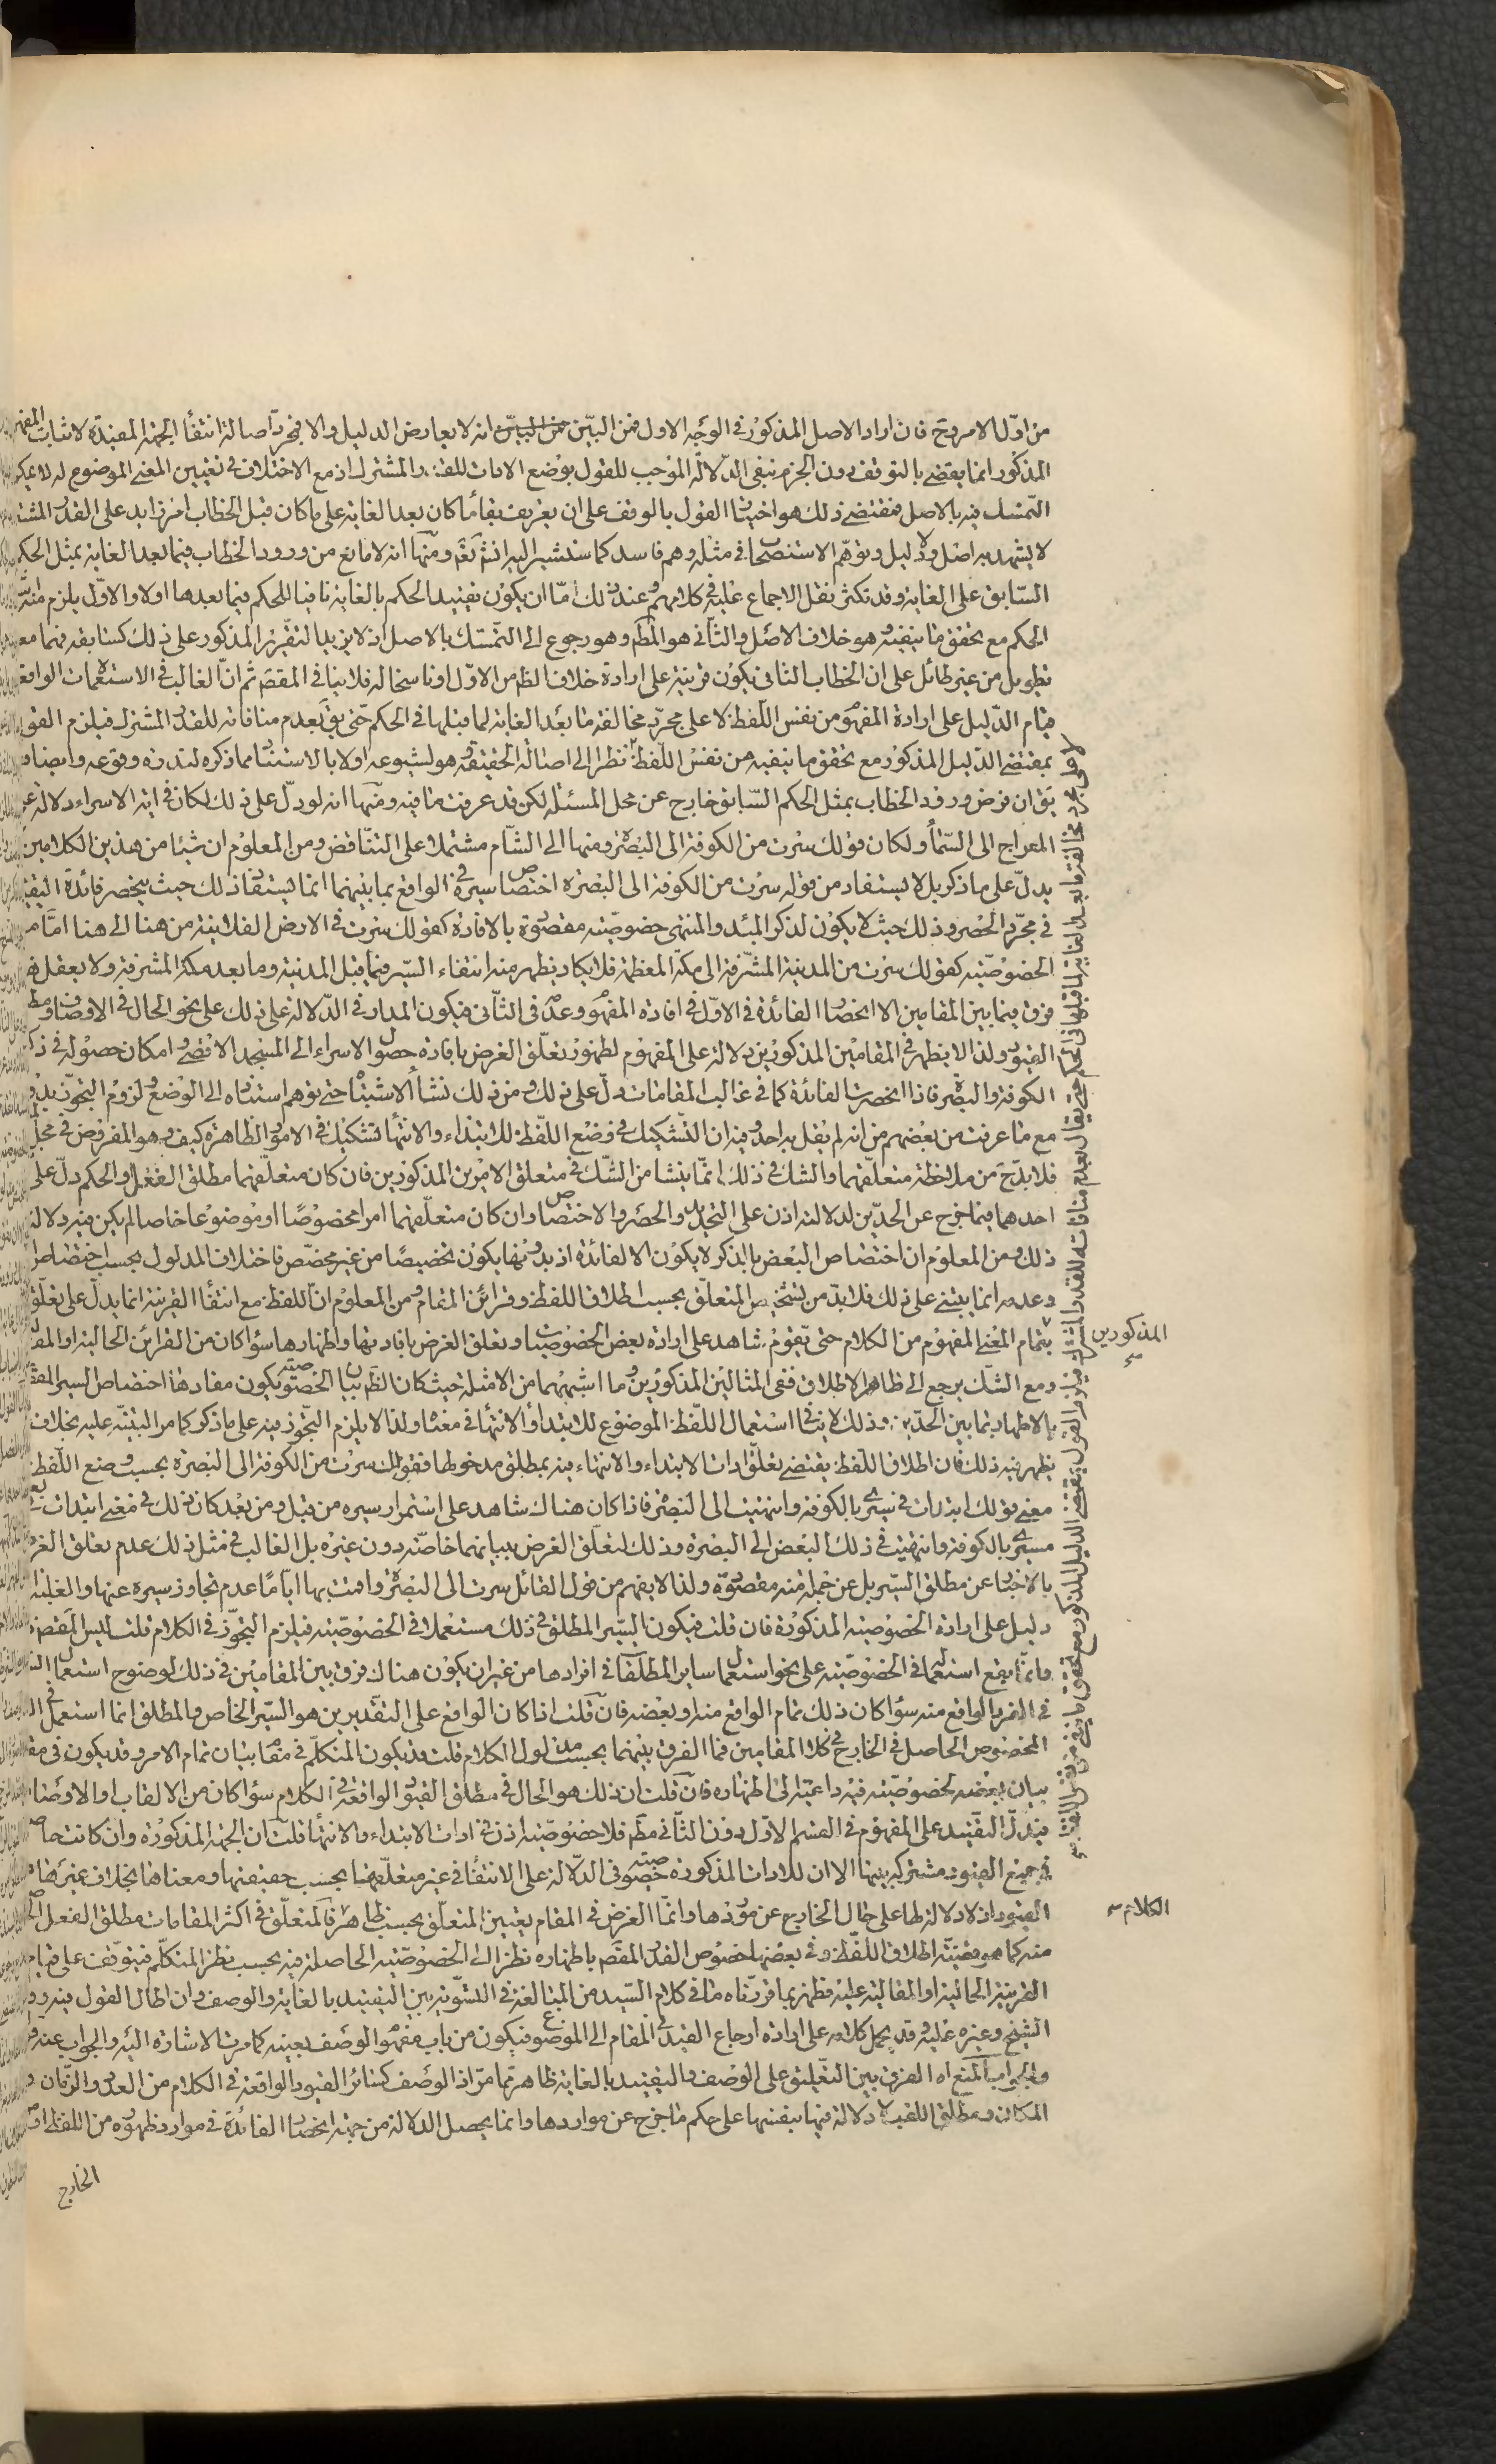 من اوّل الامر وح فان اراد الاصل المذكور فى الوجه الاول فمن البيّن انه لا يعارض الدليل والا فمجرّد اصالة انتفاء الجهة المفيدة لاثبات المفهوم
المذكور انما يقضے بالتوقف دون الجزم بنفى الدلالة الموجب للقول بوضع الادات للقدر المشترك اذ مع الاختلاف فى تعيين المعنے الموضوع له لا يمكن
التمسك فيه بالاصل فمقتضے ذلك هو اختيار القول بالوقف على ان تعريف بقاء ما كان بعد الغاية على ما كان قبل الخطاب امر زايد على القدر المشترك
لا يشهد به اصل ولا دليل وتوهّم الاستصحاب فى مثله وهم فاسد كما سنشير اليه انش تعَ ومنها انه لا مانع من ورود الخطاب فيما بعد الغاية بمثل الحكم
السّابق على الغاية وقد تكثر نقل الاجماع عليه فى كلامهم وعند ذلك امّا ان يكون تقييد الحكم بالغاية نافيا للحكم فيما بعدها اولا والاوّل يلزم منه
الحكم مع تحقق ما ينفيه وهو خلاف الاصل والثانى هو المطَ وهو رجوع الى التمسّك بالاصل اذ لا يزيد التقرير المذكور على ذلك كسابقه فهما معه
تطويل من غير طائل على ان الخطاب الثانى يكون قرينة على ارادة خلاف الظَ من الاوّل او ناسخا له فلا ينافى المقصَ ثم ان الغالب فى الاستعمالات الواقعة
قيام الدّليل على ارادة المفهوم من نفس اللّفظ لا على مجرّد مخالفة ما بعد الغاية لما قبلها فى الحكم حتى يقَ بعدم منافاته للقدر المشترك فيلزم القول
بمقتضے الدليل المذكور مع تحقق ما ينفيه من نفس اللّفظ نظرا الى اصالة الحقيقة وهو لشيوعه اولا بالاستثناء مما ذكره لندرة وقوعه وايضا قد
يقَ ان فرض ورود الخطاب بمثل الحكم السّابق خارج عن محل المسئلة لكن قد عرفت ما فيه ومنها انه لو دلّ على ذلك لكان فى اية الاسراء دلالة على
المعراج الى السّماء ولكان قولك سرت من الكوفة الى البصرة ومنها الى الشّام مشتملا على التناقض ومن المعلوم ان شيئا من هذين الكلامين لا
يدلّ على ما ذكر بل لا يستفاد من قوله سرت من الكوفة الى البصرة اختصاص سيره فى الواقع بما بينهما انما يستفاد ذلك حيث ينحصر فائدة التقييد
فى مجرّد الحصر وذلك حيث لا يكون لذكر المبدء والمنتهى خصوصيّته مقصودة بالافادة كقولك سرت فى الارض الفلانية من هنا الى هنا امّا مع
الخصوصيّة كقولك سرت من المدينة المشرّفة الى مكّة المعظمة فلا يكاد يظهر منه انتفاء السّير فيما قبل المدينة وما بعد مكة المشرفة ولا يعقل
فرق فيما بين المقامين الا انحصار الفائدة فى الاوّل فى افادة المفهوم وعدمه فى الثّانى فيكون المدار فى الدّلالة على ذلك على نحو الحال فى الاوصاف ومط
القيود ولذا لا يظهر فى المقامين المذكورين دلالة على المفهوم لظهور تعلّق الغرض بافادة حصول الاسراء الى المسجد الاقصے وامكان حصوله فى ذكر
الكوفة والبصرة فاذا انحصرت الفائدة كما فى غالب المقامات دلّ على ذلك ومن ذلك نشأ الاشتباه حتى توهم استناده الى الوضع ولزوم التجوّز بدونه
مع ما عرفت من بعضهم من انه لم يقل به احد وفيه ان التشكيك فى وضع اللّفظ للابتداء والانتهاء تشكيك فى الامور الظاهرة كيف وهو المفروض فى محلّ
فلا بدّ ح من ملاحظة متعلّقهما والشك فى ذلك انّما ينشا من الشّك فى متعلق الامرين المذكورين فان كان متعلّقهما مطلق الفعل والحكم دلّ على
احدهما فيما خرج عن الحدّين لدلالته اذن على التحديد والحصر والاختصاص وان كان متعلّقهما امرا مخصوصًا او موضوعا خاصا لم يكن فيه دلالة
ذلك ومن المعلوم ان اختصاص البعض بالذكر لا يكون الا لفائدة اذ بدونها يكون تخصيصًا من غير مخصّص فاختلاف المدلول بحسب اختصاص
وعدمه انما يبتنے على ذلك فلا بدّ من تشخيص المتعلّق بحسب اطلاق اللفظ وقرائن المقام ومن المعلوم انّ اللفظ مع انتفاء القرينة انما يدلّ على تعلّق
بتمام المعْنے المفهوم من الكلام حتى يقوم شاهد على ارادة بعض الخصوصيات وتعلق الغرض بافادتها واظهارها سواء كان من القرائن الحالية او المقالية
ومع الشك يرجع الى ظاهر الاطلاق ففى المثالين المذكورين وما اشبههما من الامثلة حيث كان الظَ بيان الخصوصيّة يكون مفاد هذا اختصاص السير المقصود
بالاظهار بما بين الحدّين وذلك لا ينافى استعمال اللّفظ الموضوع للابتداء والانتهاء فى معناه ولذا لا يلزم التجوّز فيه على ما ذكر كما مر التنبيه عليه بخلاف
يظهر فيه ذلك فان اطلاق اللّفظ يقتضے تعلّق ادات الابتداء والانتهاء فيه بمطلق مدخولها فقولك سرت من الكوفة الى البصرة بحسب وضع اللّفظ
معنى قولك ابتدات فى سيرى بالكوفة وانتهيت الى البصرة فاذا كان هناك شاهد على استمرار سيره من قبل ومن بعد كان ذلك فى معنے ابتدات
مسيرى بالكوفة وانتهيت فى ذلك البعض الى البصرة وذلك لتعلّق الغرض ببيانهما خاصّة دون غيره بل الغالب فى مثل ذلك عدم تعلق الغرض
بالاخبار عن مطلق السّير بل عن جملة منه مقصودة ولذا لا يفهم من قول القائل سرت الى البصرة واقمت بها ايّامًا عدم تجاوز سيره عنها والغلبة
دليل على ارادة الخصوصيّة المذكورة فان قلت فيكون السّير المطلق فى ذلك مستعملا فى الخصوصيّة فيلزم التجوّز فى الكلام قلت ليس المقصَ
وانّما يقع استعماله فى الخصوصيّة على نحو استعمال ساير المطلقات فى افرادها من غير ان يكون هناك فرق بين المقامين فى ذلك لوضوح استعمال
فى الفرد الواقع منه سواء كان ذلك تمام الواقع منه او بعضه فان قلت اذا كان الواقع على التقديرين هو السّير الخاص والمطلق انما استعمل فى
المخصوص الحاصل فى الخارج فى كلا المقامين فما الفرق بينهما بحسب مدلول الكلام قلت قد يكون المتكلّم فى مقام بيان تمام الامر وقد يكون فى مقام
بيان بعضه لخصوصيّته فيه داعية الى اظهاره فان قلت ان ذلك هو الحال فى مطلق القيود الواقعة فى الكلام سواء كان من الالقاب او الاوصاف
فيدلّ التقييد على المفهوم فى القسم الاوّل دون الثّانى مطَ فلا خصوصيّة اذن فى ادات الابتداء والانتهاء قلت ان الجهة المذكورة وان كانت حاصلة
فى جميع القيود مشتركة بينها الا ان للادات المذكورة خصوصيّة فى الدّلالة على الانتفاء فى غير متعلّقهما بحسب حقيقتها ومعناها بخلاف غيرها من
القيود اذ لا دلالة لها على حال الخارج عن موردها وانّما الغرض فى المقام تعيين المتعلّق بحسب ظاهر فالمتعلّق فى اكثر المقامات مطلق الفعل
منه كما هو قضيّة اطلاق اللّفظ وفى بعضها خصوص القدر المقصَ باظهاره نظرا الى الخصوصيّة الحاصلة فيه بحسب نظر المتكلّم فيتوقف على قيام
القرينة الحالية او المقالية عليه فظهر بما قررناه ما فى كلام السّيد من المبالغة فى التسوية بين التقييد بالغاية والوصف وان اطال القول فيه ورد
الشيخ وغيره عليه وقد يحمل كلامه على ارادة ارجاع القيد فى المقام الى الموضوع فيكون من باب مفهوم الوصف بعينه كما مرت الاشارة اليه والجواب عنه
والجواب المنع اه الفرق بين التّعليق على الوصف والتقييد بالغاية ظاهر مما مرّ اذ الوصف كسائر القيود الواقعة فى الكلام من العدد والزمان و
المكان ومطلق اللقب لا دلالة فيها بنفسها على حكم ما خرج عن مواردها وانما يحصل الدلالة من جهة انحصار الفائدة فى موارد ظهوره من اللفظ او
الخارج
لا على مجرّد مخالفة ما بعد الغاية لما قبلها فى الحكم حتى يقال بعدم منافاته للقدر المشترك فيلزم القول بمقتضى الدليل المذكور مع تحقق ما ينفيه من نفس اللّفظ
المذكورين
الكلام